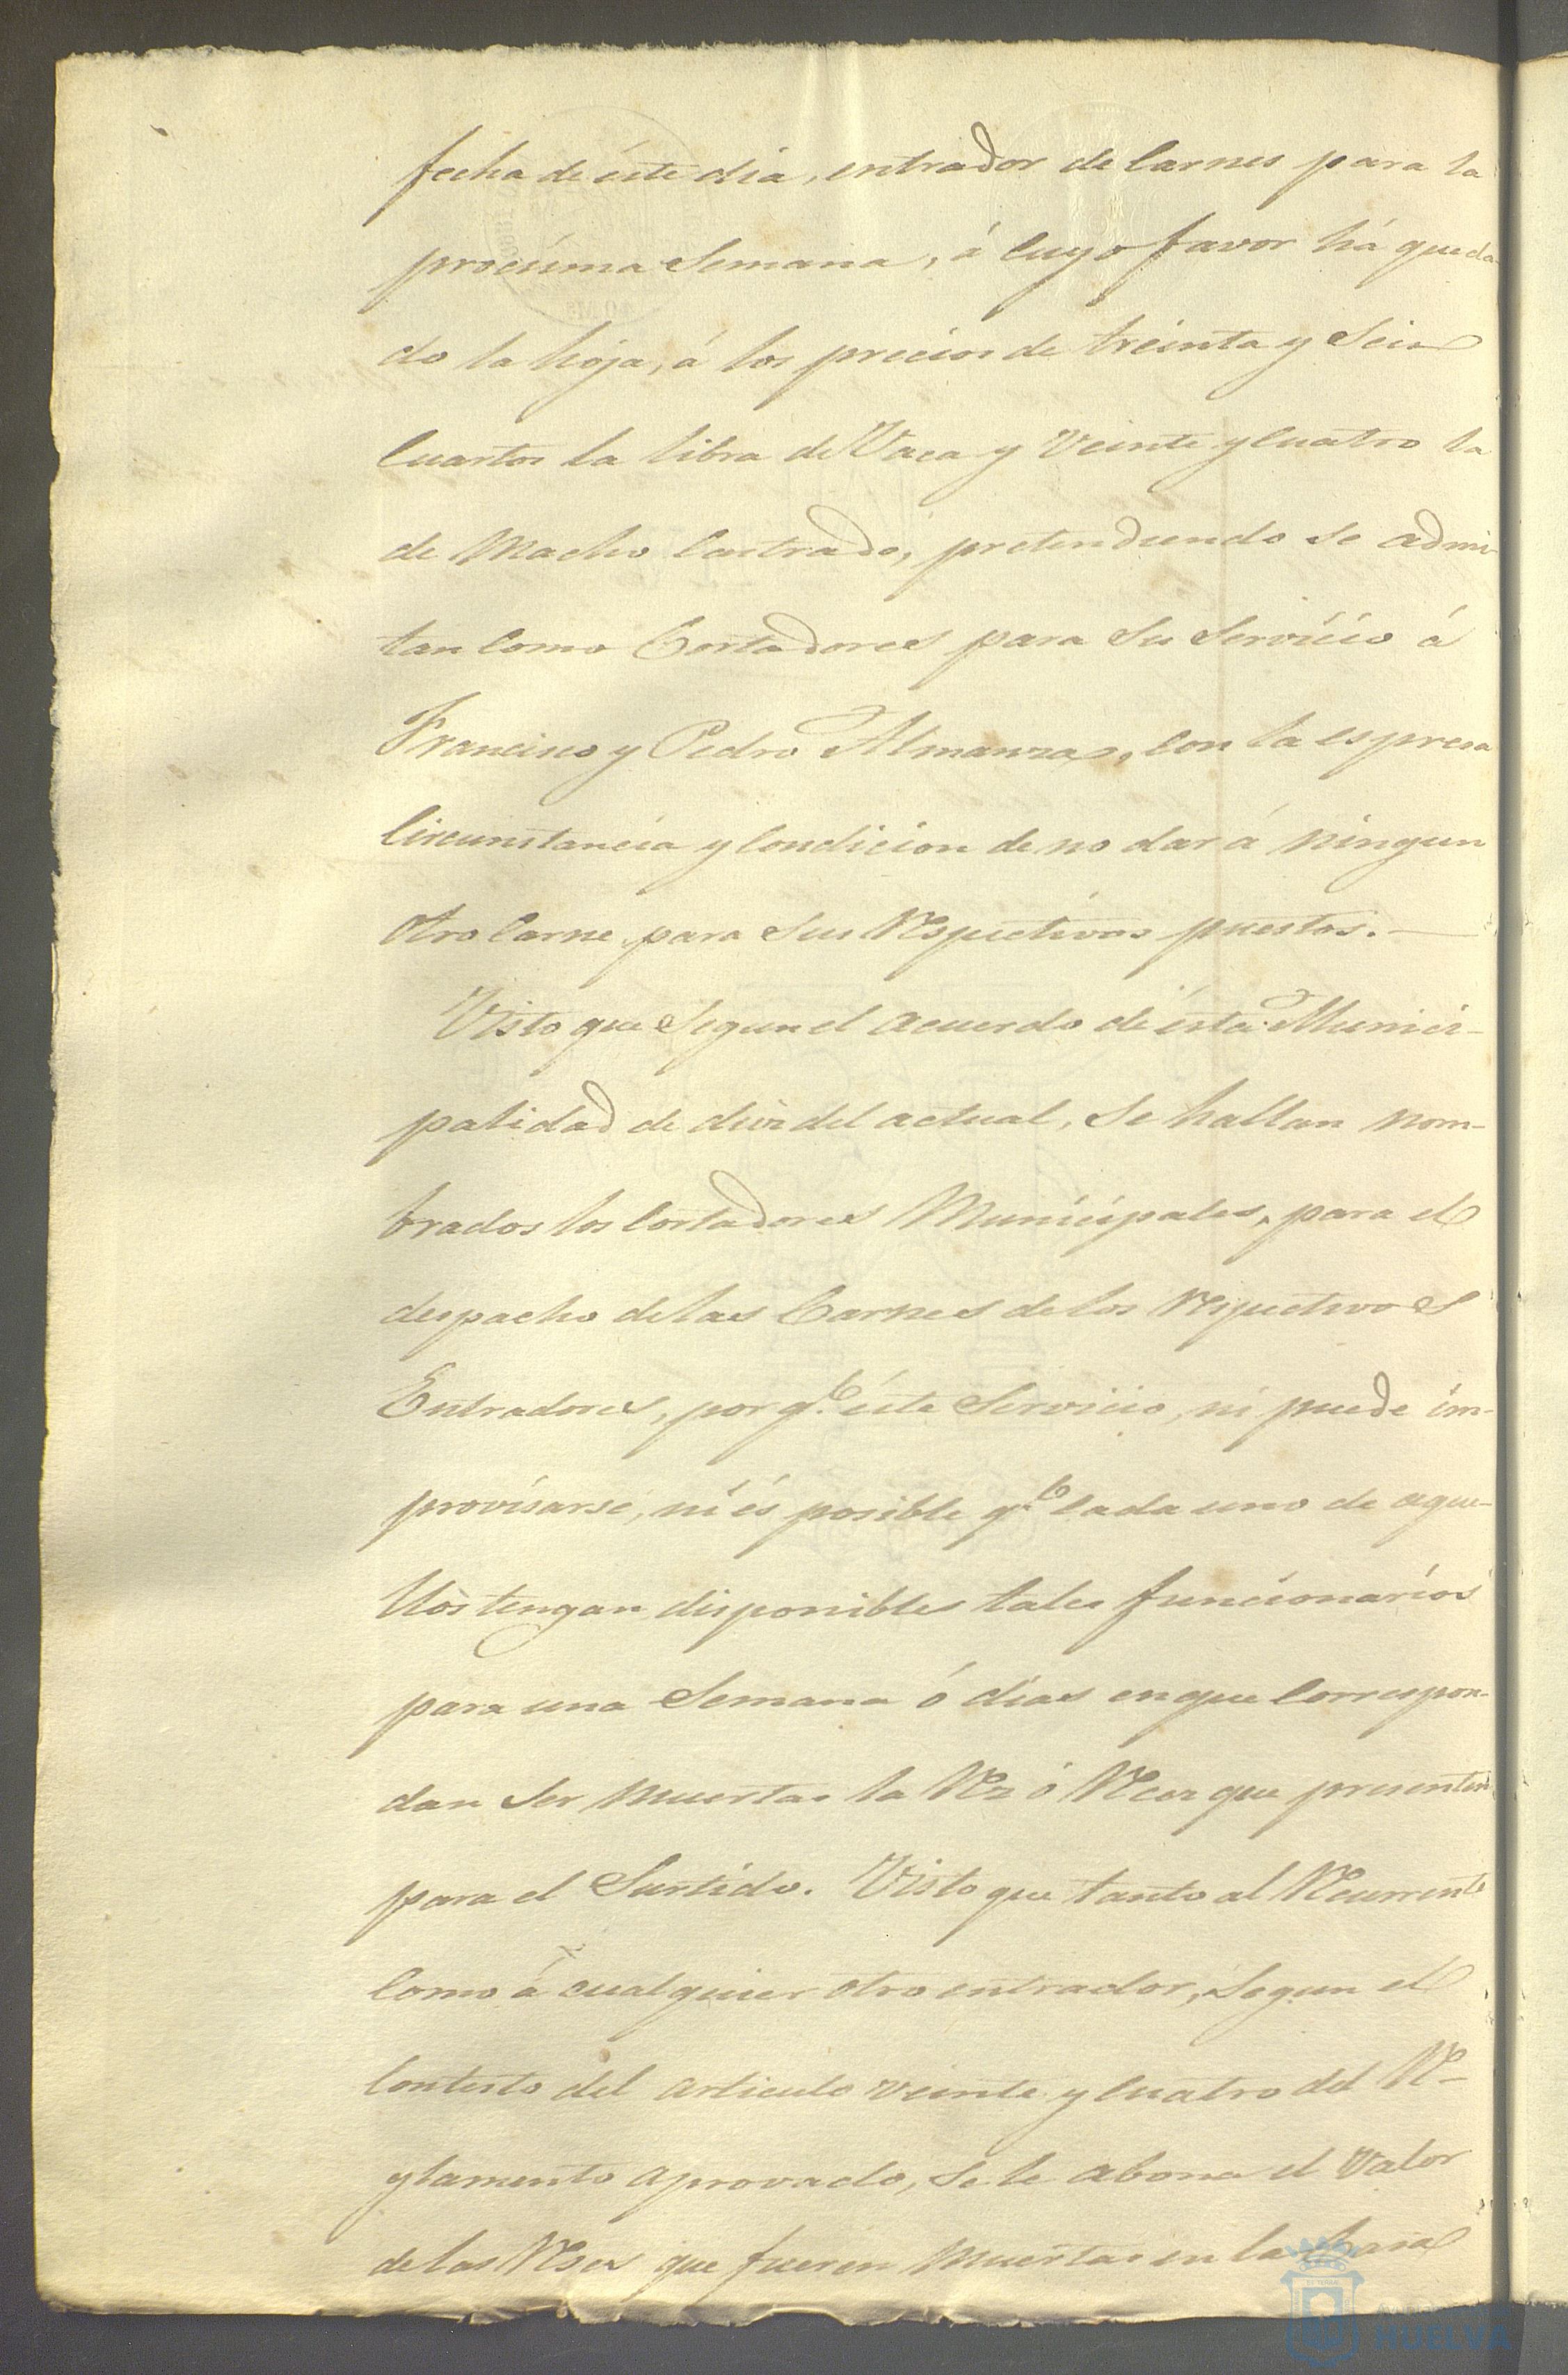 fecha de éste dia, entrador de Carnes para la
procsima Semana, á Cuyo favor há queda
do la hoja, á los precios de treinta y Seis
Cuartos la libra de Vaca y Veinte y Cuatro la
de Macho Castrado, pretendiendo se admi-
tan Como Cortadores para Su Servicio á
Francisco y Pedro Almanzas, Con la espresa
Circunstancia y Condicion de no dar á ningun
Otro Carne para Sus Respectivos puestos.
Visto que Segun el acuerdo de ésta Munici-
palidad de diez del actual, Se hallan nom-
brados los Cortadores Municipales, para el
despacho de las Carnes de los respectivos
Entradores, por qe. éste Servicio, ni puede im-
provisarse, ni és posible qe. Cada uno de aque-
llos tengan disponibles tales funcionarios
para una Semana ó dias en que Correspon-
dan Ser Muertas la Rez ó Reces que presenten
para el Surtido. Visto que tanto al Recurrente
Como á cualquier otro entrador, Segun el
Contesto del articulo veinte y Cuatro del Re-
glamento aprovado, Se le abona el Valor
de las Reses que fueren Muertas en la Casa
HUELVA